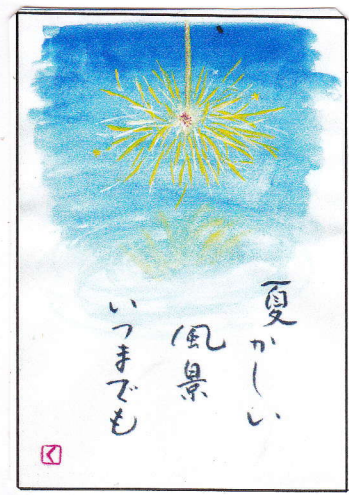 夏かしい
風景
いつまでも
く